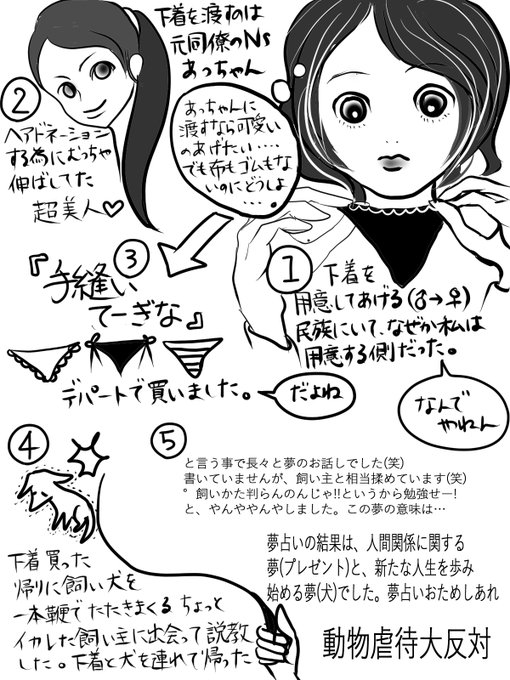 下着を渡すのは
元同僚のNs
あっちゃん
②
ヘアドネーション
する為にむっちゃ
伸ばしてた
超美人♡
あっちゃんに
渡すなら可愛い
のあげたい…
でも布もゴムもな
いのにどうしよ
…。
①
下着を
用意してあげる(♂→♀)
民族にいて、なぜか私は
用意する側だった。
なんで
やねん
③
『手縫い
てーぎな』
デパートで買いました。
だよね
④
下着買った
帰りに飼い犬を
一本鞭でたたきまくる ちょっと
イカレた飼い主に出会って説教
した。下着と犬を連れて帰った
⑤
と言う事で長々と夢のお話しでした(笑)
書いていませんが、飼い主と相当揉めています(笑)
゜飼いかた判らんのんじゃ!!というから勉強せー!
と、やんややんやしました。この夢の意味は…
夢占いの結果は、人間関係に関する
夢(プレゼント)と、新たな人生を歩み
始める夢(犬)でした。夢占いおためしあれ
動物虐待大反対